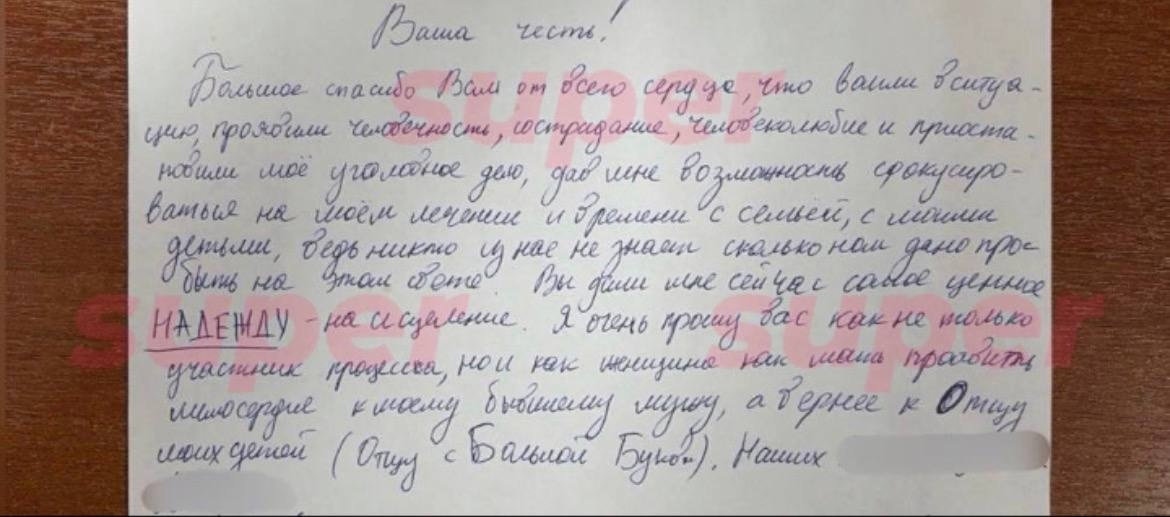 Ваша честь!
Большое спасибо Вам от всего сердца, что вошли в ситуа-
цию, проявили человечность, сострадание, человеколюбие и приоста-
новили моё уголовное дело, дав мне возможность сфокусиро-
ваться на моём лечении и времени с семьёй, с моими
детьми, ведь никто из нас не знает сколько нам дано про-
быть на этом свете. Вы дали мне сейчас самое ценное
НАДЕЖДУ - на исцеление. Я очень прошу вас как не только
участник процесса, но и как женщина как мать проявить
милосердие к моему бывшему мужу, а вернее к Отцу
моих детей (Отцу с Большой Буквы). Наших
super
super
super